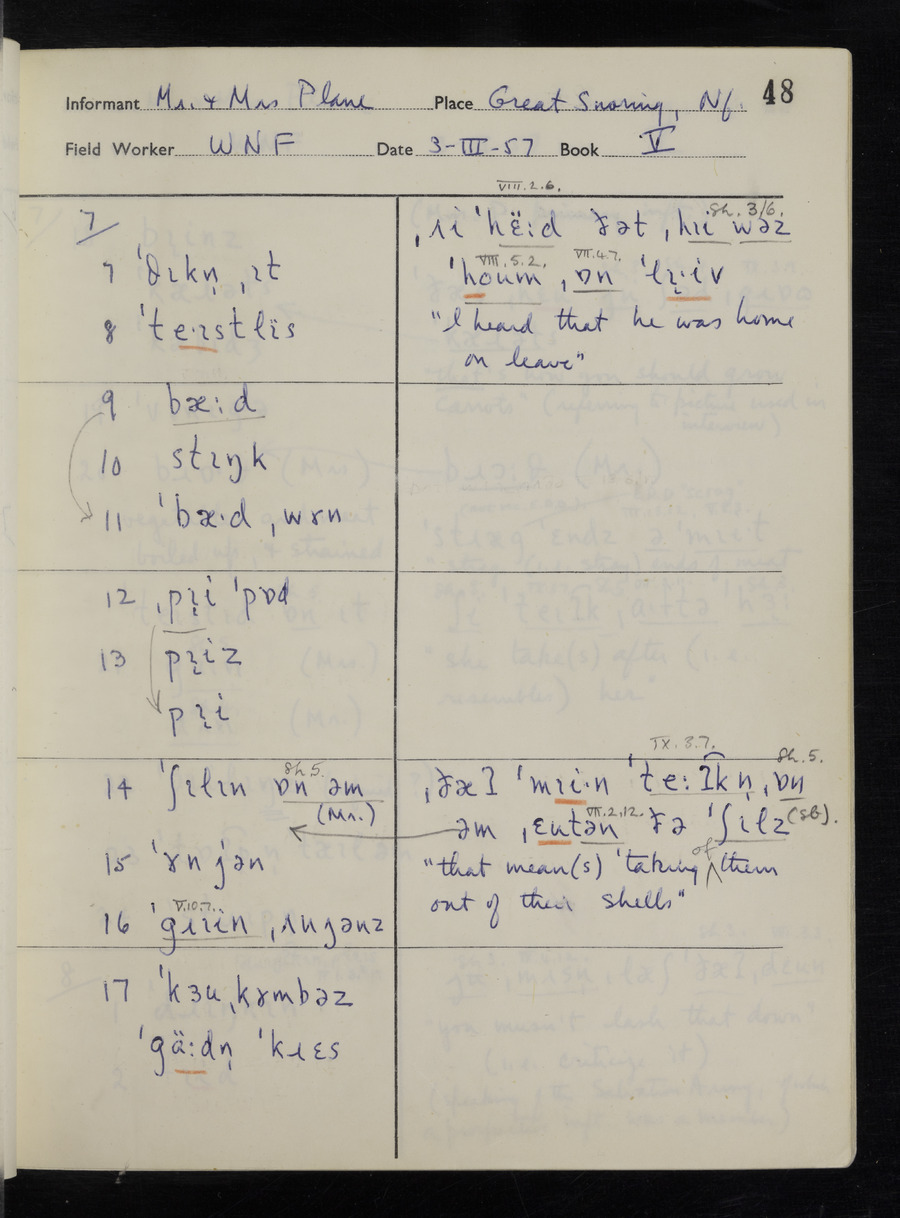 48
Informant Mr. & Mrs Plane Place Great Snoring, Nf.
Field Worker WNF Date 3-III-57 Book V
7/
7 ˈθɪkn̩ ˌɪt
8 ˈteɪstlïs
9 bæ:d
10 stɪŋk
11 ˈbæ·d ˌwɤn
12 ˌpɪ̣i ˈpɒd
13 pɪ̣iz
ˈpɪ̣i
14 ˈʃɪlɪn ɒn əm
Sh. 5.
(Mr.)
15 ˈɤnjən
16 ˈgɪɪin ˌʌnjənz
V.10.7.
17 ˈkɜuˌkɤmbəz
ˈgä:dn̩ ˈkɹɛs
VIII.2.6.
Sh. 3/6.
ˌʌi ˈhë:d ðət ˌhɪi wəz
VIII.5.2. VII.4.7.
ˈhoum ˌɒn ˈlɪ̣·iv
"I heard that he was home
on leave"
IX.3.7.
Sh. 5.
ˌðæʔ ˈmɪi·n ˈte:ʔkn̩ ˌɒn
VII.2.12.
əm ˌɛutən ðə ˈʃɪlz (SB).
"that mean(s) 'taking of them
out of their shells"